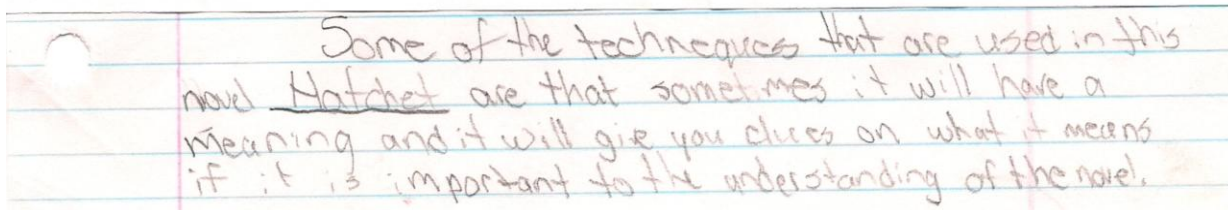 Some of the techneques that are used in this
novel Hatchet are that sometimes it will have a
meaning and it will give you clues on what it means
if it is important to the understanding of the novel.